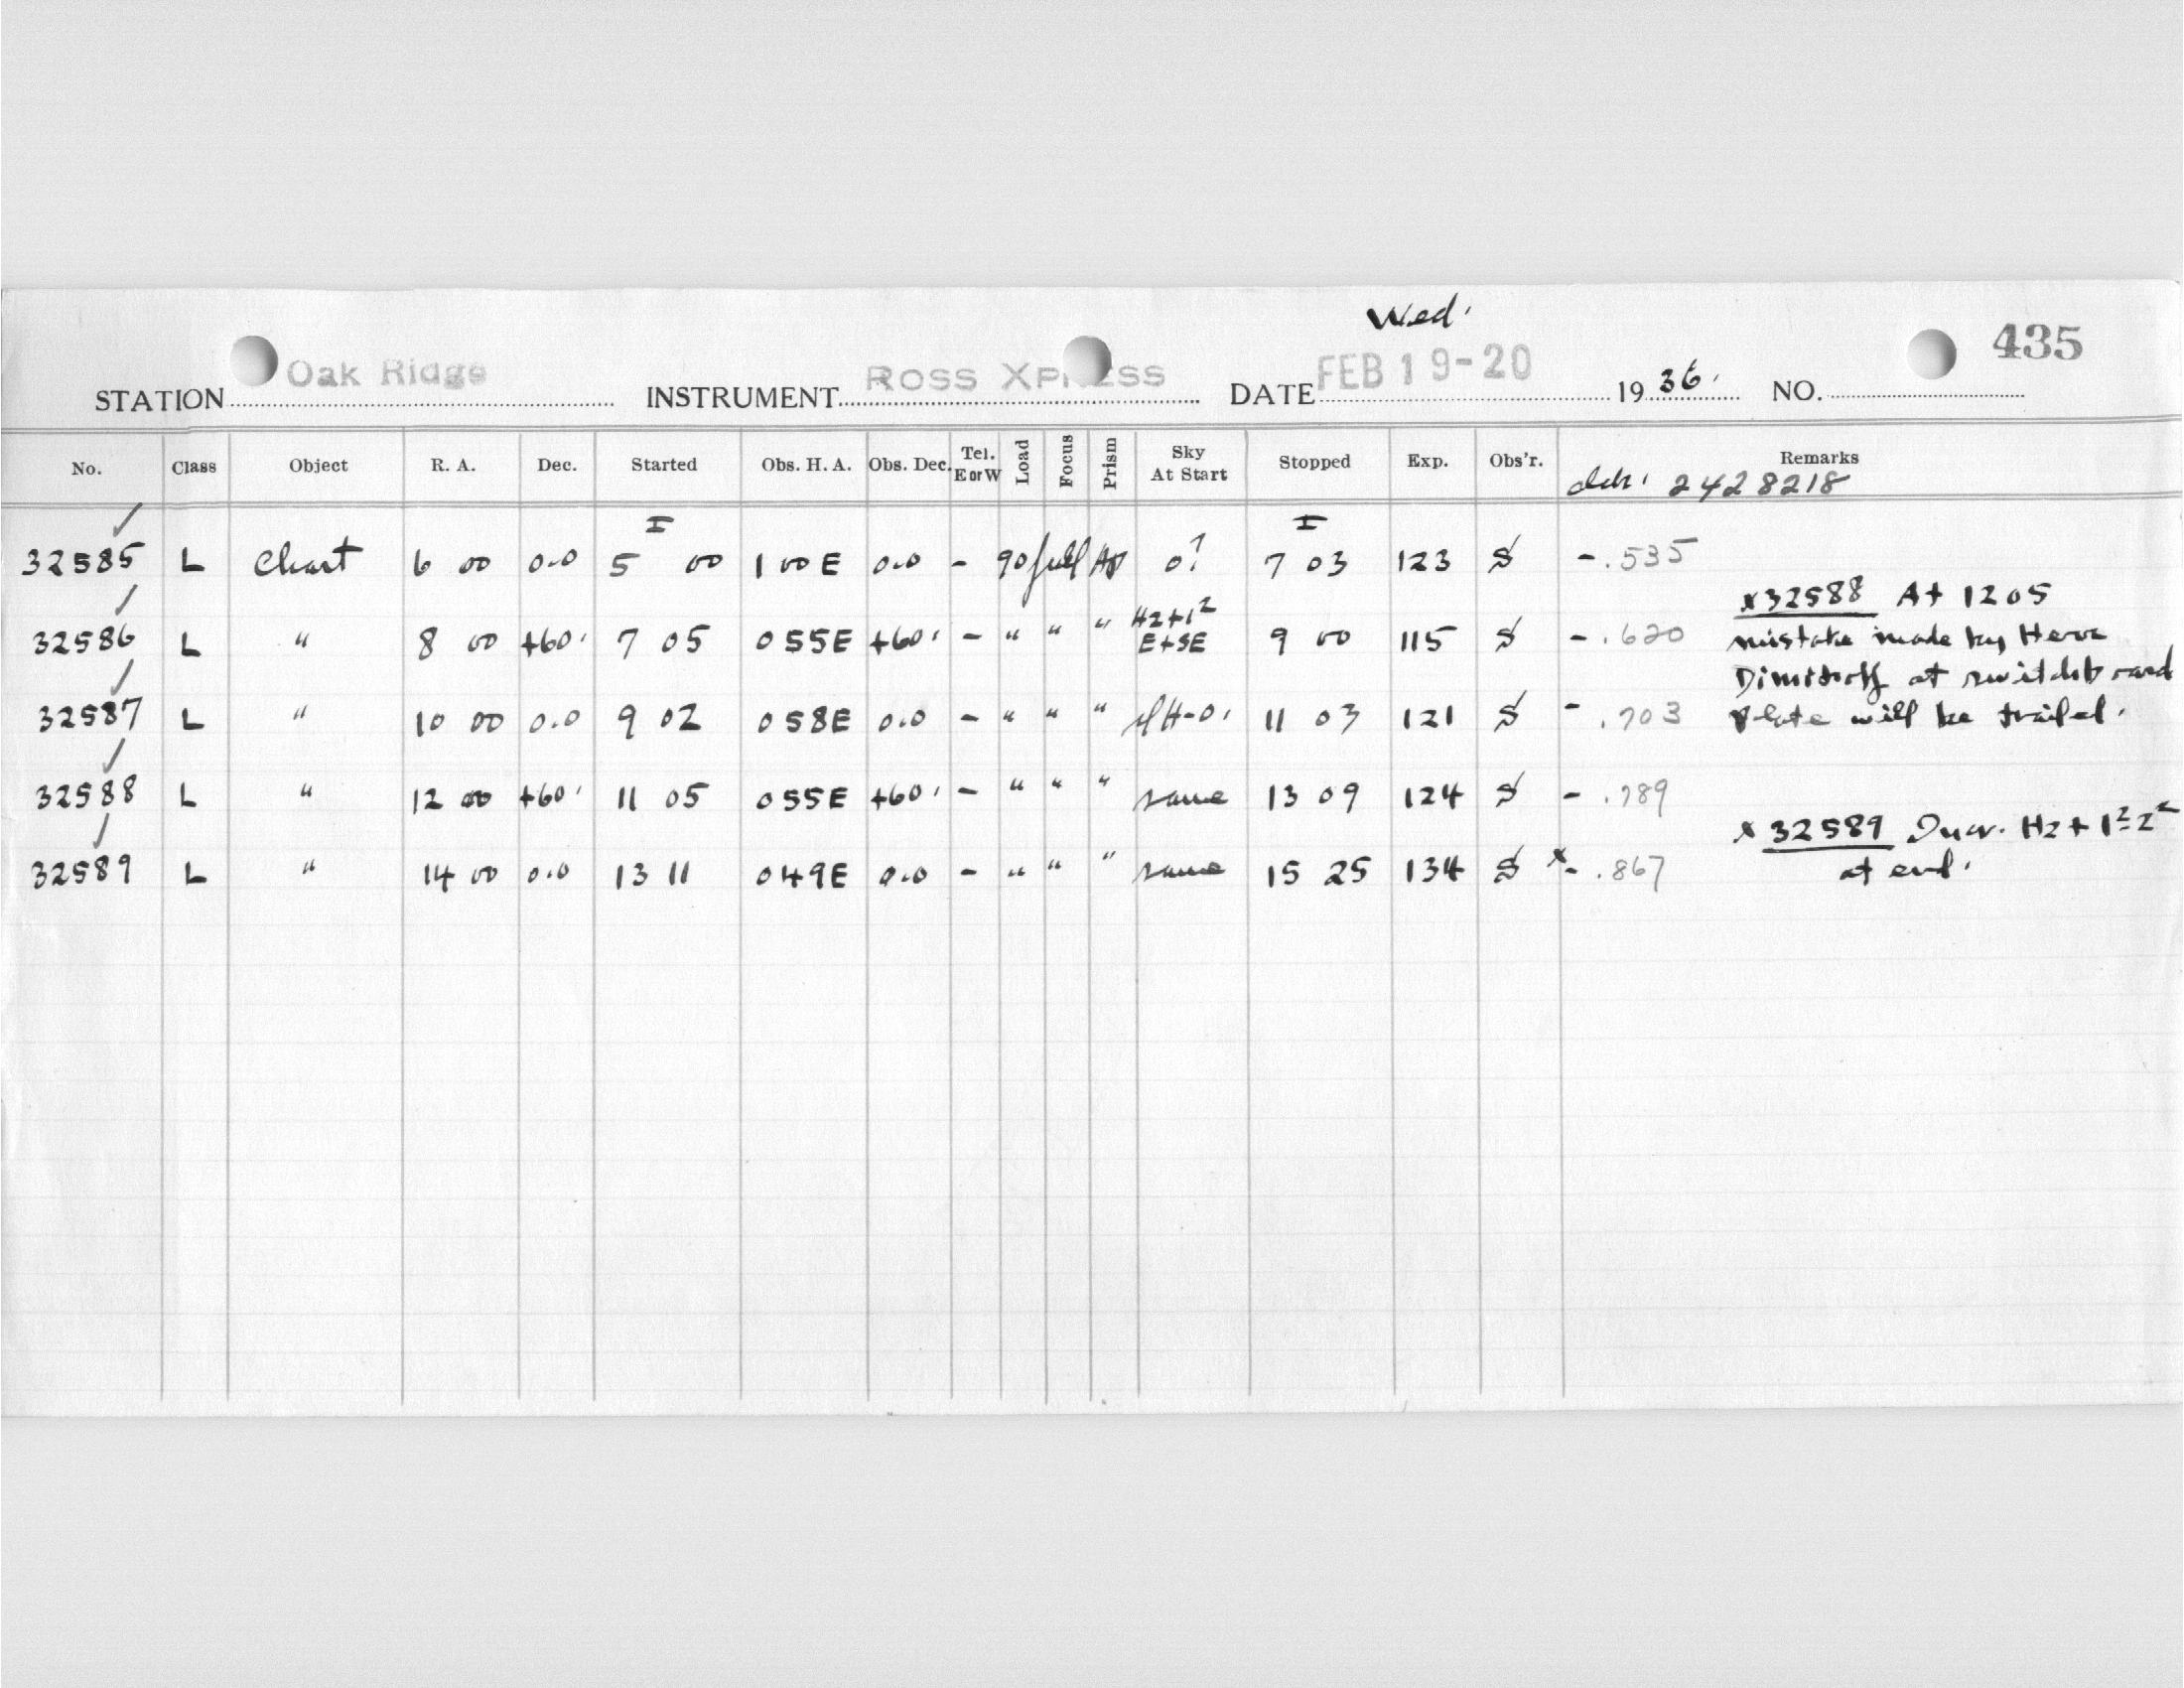 Wed.
435
STATION Oak Ridge INSTRUMENT ROSS XPRESS DATE FEB 19-20 1936. NO.
No. Class Object R. A. Dec. Started Obs. H. A. Obs. Dec. Tel. E or W Load Focus Prism Sky At Start Stopped Exp. Obs'r. Remarks
2428218
I I
32585 L Chart 6 00 0.0 5 00 1 00 E 0.0 - 90 full 0? 7 03 123 S - .535
x32588 At 1205
32586 L " 8 00 +60. 7 05 0 55E +60. - " " " Hz+1² E+SE 9 00 115 S - .620 mistake made by
at switchboard
32587 L " 10 00 0.0 9 02 0 58E 0.0 - " " " 11 03 121 S - .703 Plate will be trailed.
32588 L " 12 00 +60. 11 05 0 55E +60. - " " " same 13 09 124 S - .789
x 32589 Hz + 1²-2²
32589 L " 14 00 0.0 13 11 0 49E 0.0 - " " " same 15 25 134 S x - .867 at end.